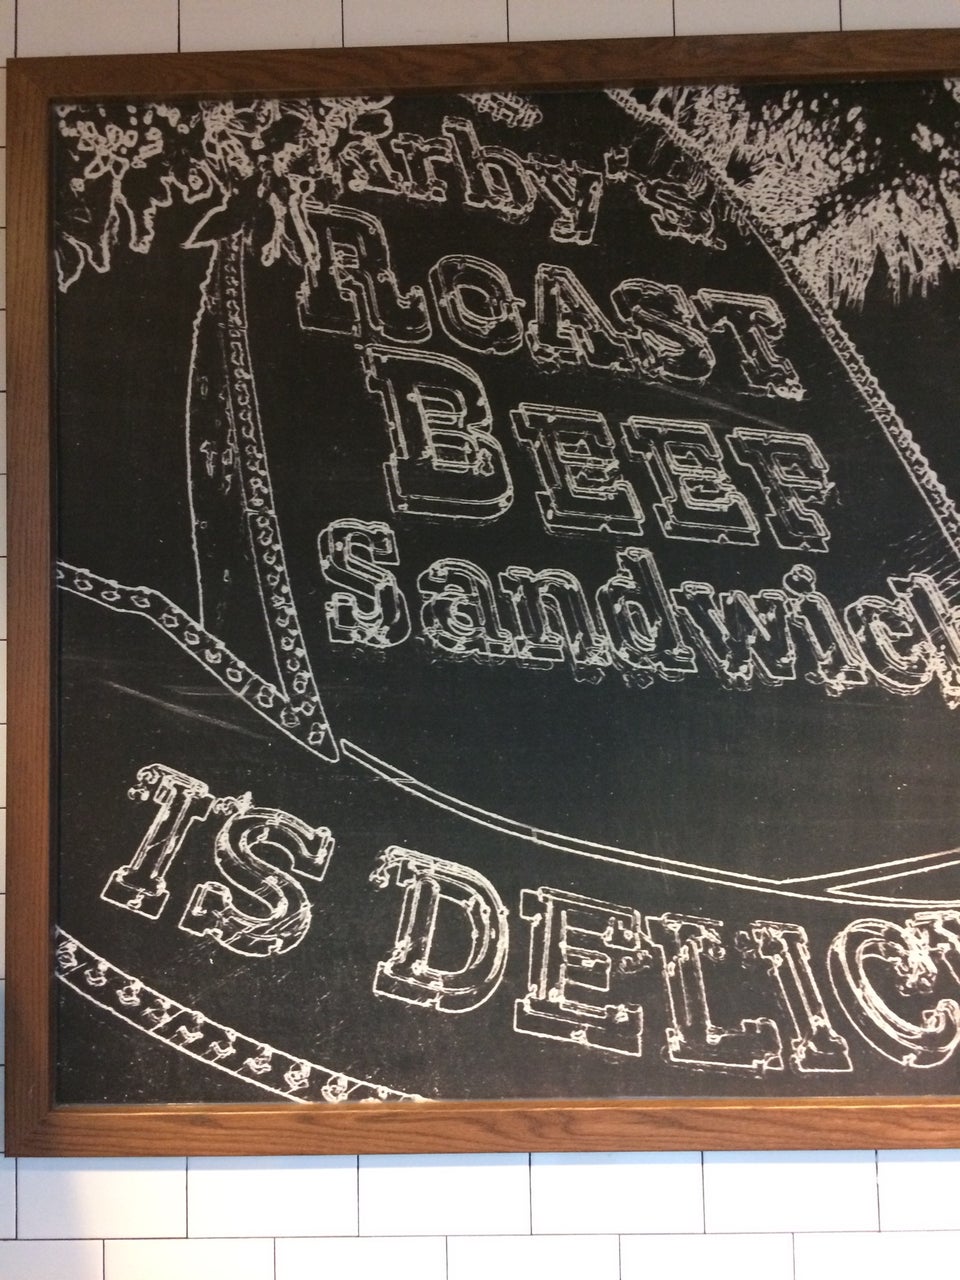 Arby's
ROAST
BEEF
Sandwich
IS DELIC